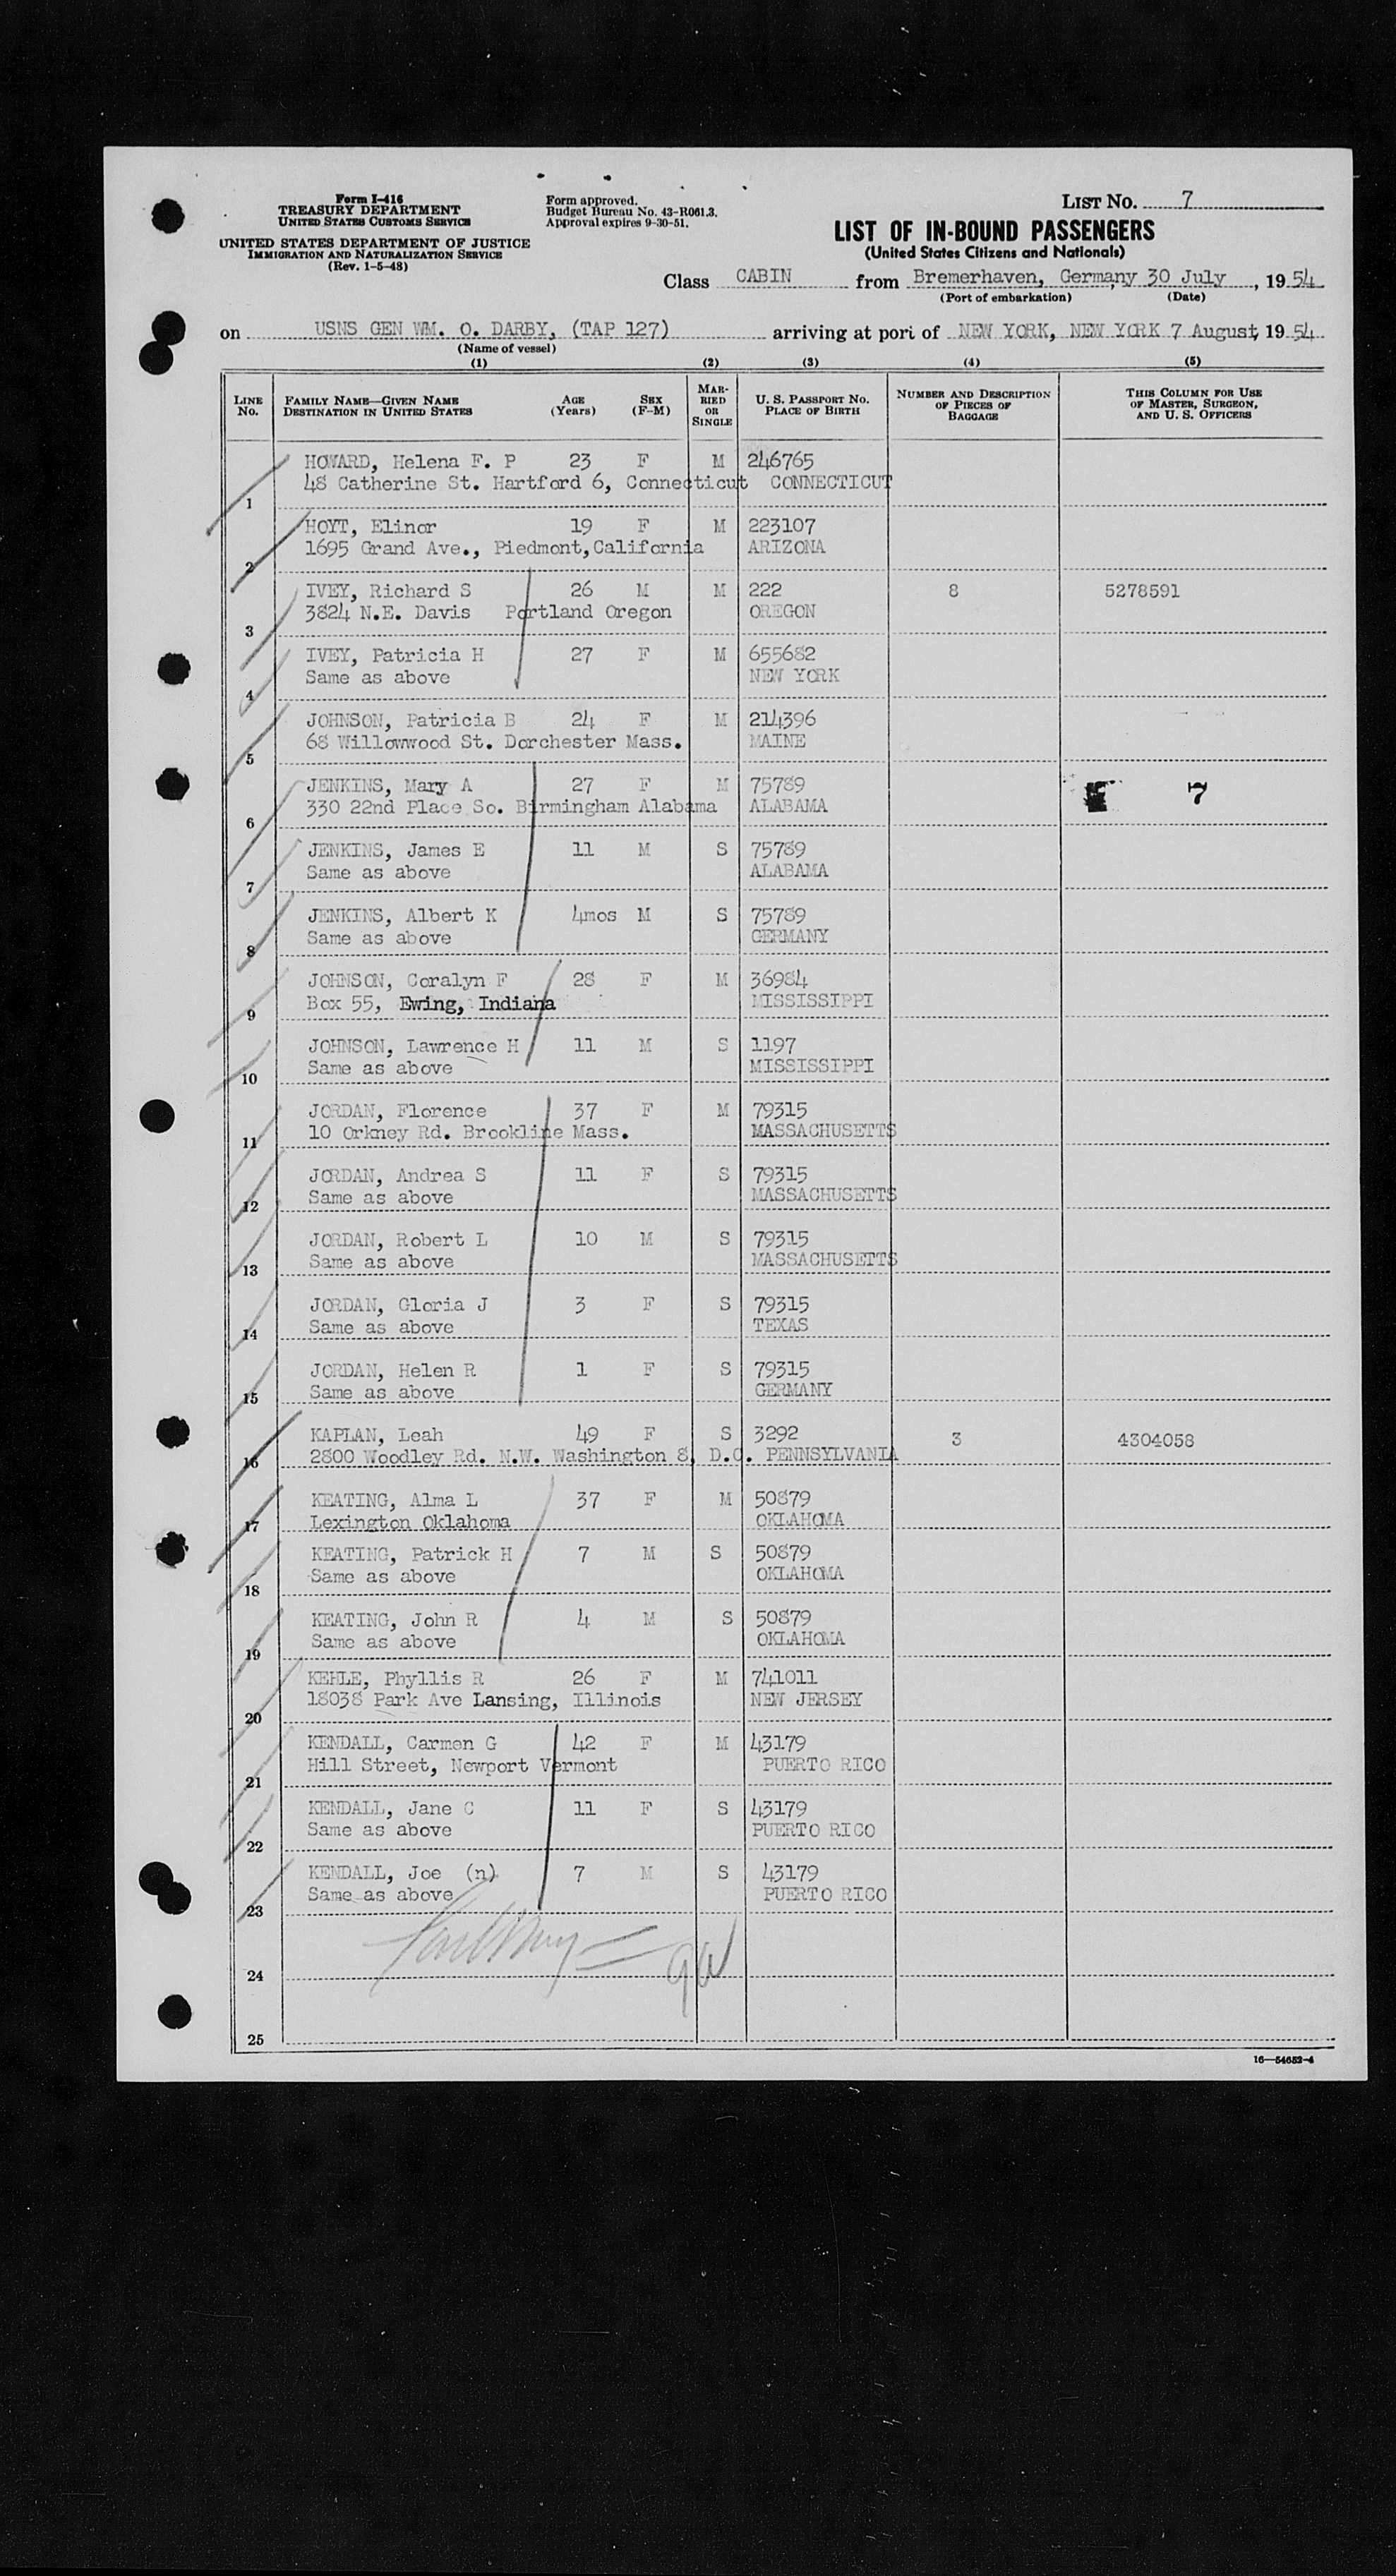 Form I-416
TREASURY DEPARTMENT
UNITED STATES CUSTOMS SERVICE
UNITED STATES DEPARTMENT OF JUSTICE
IMMIGRATION AND NATURALIZATION SERVICE
(Rev. 1-5-48)
Form approved.
Budget Bureau No. 43-R061.3.
Approval expires 9-30-51.
LIST NO. 7
LIST OF IN-BOUND PASSENGERS
(United States Citizens and Nationals)
Class CABIN from Bremerhaven, Germany, 30 July, 1954
(Port of embarkation) (Date)
on USNS GEN WM. O. DARBY, (TAP 127) arriving at port of NEW YORK, NEW YORK 7 August, 1954
(Name of vessel)
(1) (2) (3) (4) (5)
LINE NO. FAMILY NAME—GIVEN NAME DESTINATION IN UNITED STATES AGE (Years) SEX (F-M) MARRIED OR SINGLE U. S. PASSPORT NO. PLACE OF BIRTH NUMBER AND DESCRIPTION OF PIECES OF BAGGAGE THIS COLUMN FOR USE OF MASTER, SURGEON, AND U. S. OFFICERS
HOWARD, Helena F. P 23 F M 246765
48 Catherine St. Hartford 6, Connecticut CONNECTICUT
1
HOYT, Elinor 19 F M 223107
1695 Grand Ave., Piedmont, California ARIZONA
2
IVEY, Richard S 26 M M 222 8 5278591
3824 N.E. Davis Portland Oregon OREGON
3
IVEY, Patricia H 27 F M 655682
Same as above NEW YORK
4
JOHNSON, Patricia B 24 F M 214396
68 Willowwood St. Dorchester Mass. MAINE
5
JENKINS, Mary A 27 F M 75789 7
330 22nd Place So. Birmingham Alabama ALABAMA
6
JENKINS, James E 11 M S 75789
Same as above ALABAMA
7
JENKINS, Albert K 4mos M S 75789
Same as above GERMANY
8
JOHNSON, Coralyn F 28 F M 36984
Box 55, Ewing, Indiana MISSISSIPPI
9
JOHNSON, Lawrence H 11 M S 1197
Same as above MISSISSIPPI
10
JORDAN, Florence 37 F M 79315
10 Orkney Rd. Brookline Mass. MASSACHUSETTS
11
JORDAN, Andrea S 11 F S 79315
Same as above MASSACHUSETTS
12
JORDAN, Robert L 10 M S 79315
Same as above MASSACHUSETTS
13
JORDAN, Gloria J 3 F S 79315
Same as above TEXAS
14
JORDAN, Helen R 1 F S 79315
Same as above GERMANY
15
KAPLAN, Leah 49 F S 3292 3 4304058
2800 Woodley Rd. N.W. Washington 8, D.C. PENNSYLVANIA
16
KEATING, Alma L 37 F M 50879
Lexington Oklahoma OKLAHOMA
17
KEATING, Patrick H 7 M S 50879
Same as above OKLAHOMA
18
KEATING, John R 4 M S 50879
Same as above OKLAHOMA
19
KEHLE, Phyllis R 26 F M 741011
18038 Park Ave Lansing, Illinois NEW JERSEY
20
KENDALL, Carmen G 42 F M 43179
Hill Street, Newport Vermont PUERTO RICO
21
KENDALL, Jane C 11 F S 43179
Same as above PUERTO RICO
22
KENDALL, Joe (n) 7 M S 43179
Same as above PUERTO RICO
23
24
25
16—54652-4